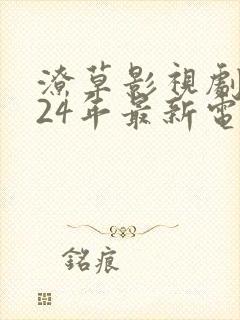 潦草影視劇
24年最新電
銘痕